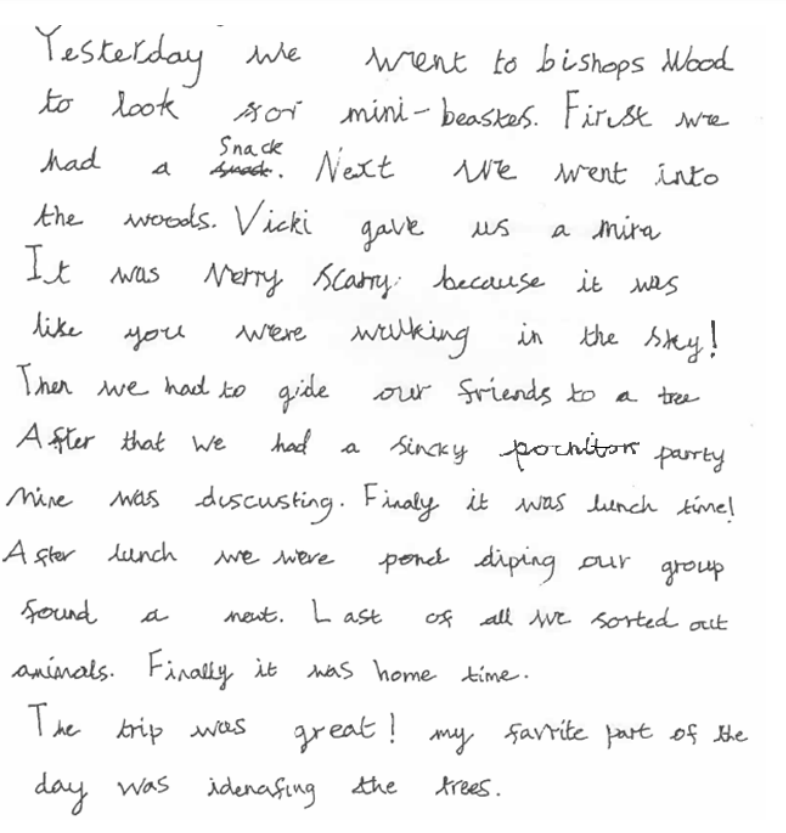 Yesterday we went to bishops Wood
to look for mini-beastes. First we
had a Snack snack. Next we went into
the woods. Vicki gave us a mira
It was verry scarry because it was
like you were wulking in the sky!
Then we had to gide our friends to a tree
After that we had a sincky parrty
Mine was duscusting. Finaly it was lunch time!
After lunch we were pond diping our group
found a neut. Last of all we sorted out
animals. Finally it was home time.
The trip was great! my favrite part of the
day was idenafing the trees.